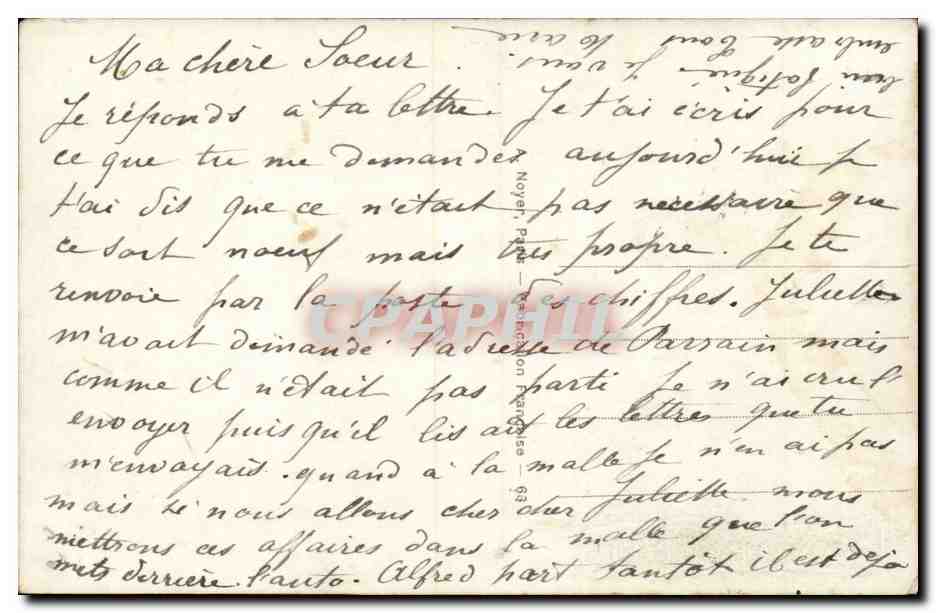 Ma chère Soeur.
Je réponds a ta lettre. Je t'ai écris pour
ce que tu me demandez aujourd'hui je
t'ai dis que ce n'était pas necessaire que
ce soit noeuf mais très propre. Je te
renvoie par la poste des chiffres. Juliette
m'avait demandé l'adresse de Parrain mais
comme il n'était pas parti Je n'ai cru l'
envoyer puis qu'il lis ait les lettres que tu
m'envoyais. quand à la malle Je n'en ai pas
mais si nous allons chercher Juliette nous
mettrons ces affaires dans la malle que l'on
mets derrière l'auto. Alfred part tantôt il est deja
bien fatigué. Je vous
embrasse tous
Noyer, Paris — Fabrication Française — 63
CPAPHIL